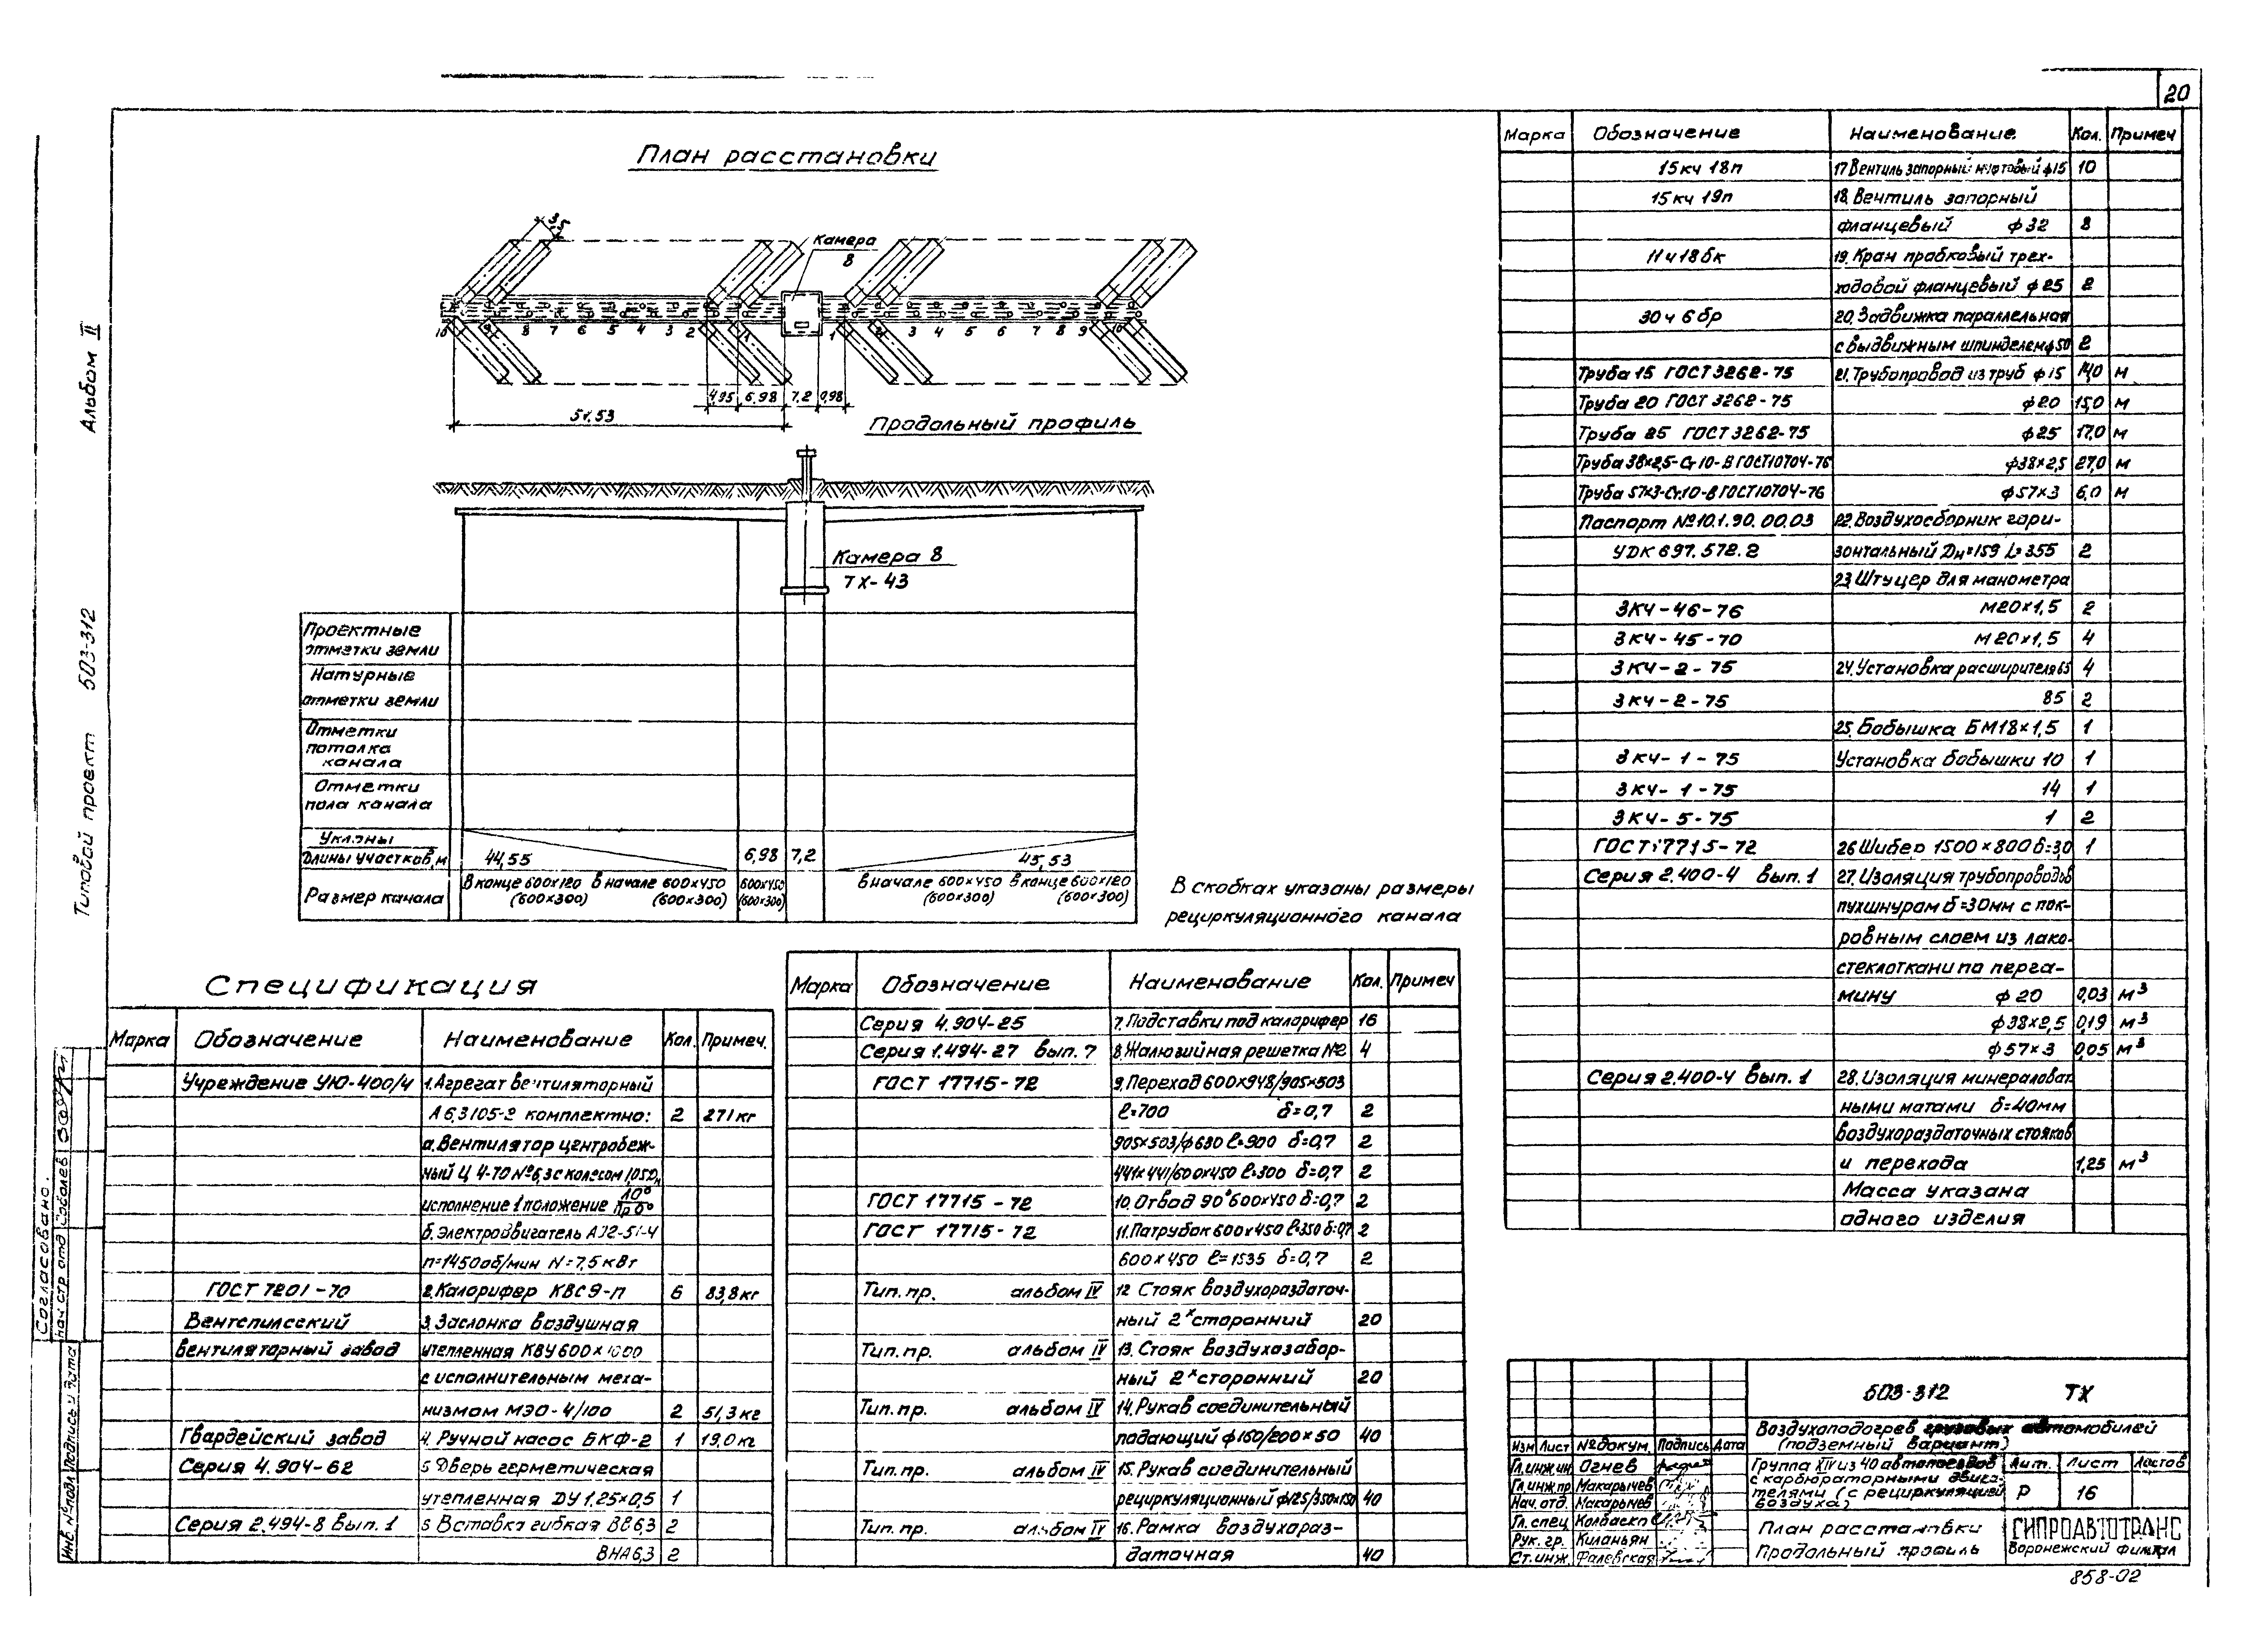 20
План расстановки
3,5
Камера
8
10 9 8 7 6 5 4 3 2 1 1 2 3 4 5 6 7 8 9 10
4,95 6,98 7,2 0,98
51,53
Продольный профиль
Камера 8
ТХ-43
Проектные
отметки земли
Натурные
отметки земли
Отметки
потолка
канала
Отметки
пола канала
Уклоны
Длины участков, м 44,55 6,98 7,2 45,53
Размер канала
в конце 600×120 в начале 600×450 600×450 в начале 600×450 в конце 600×120
(600×300) (600×300) (600×300) (600×300) (600×300)
В скобках указаны размеры
рециркуляционного канала
Спецификация
Марка Обозначение Наименование Кол. Примеч.
Учреждение УЮ-400/4 1. Агрегат вентиляторный
А6,3105-2 комплектно: 2 271 кг
а. Вентилятор центробеж-
ный Ц 4-70 №6,3 с колесом 1,05Dн
исполнение 1 положение Пр 0°
б. Электродвигатель АО2-51-4
n=1450 об/мин N=7,5 кВт
ГОСТ 7201-70 2. Калорифер КВС9-п 6 83,8 кг
Вентспилсский 3. Заслонка воздушная
вентиляторный завод утепленная КВУ 600×1000
с исполнительным меха-
низмом МЭО-4/100 2 51,3 кг
Гвардейский завод 4. Ручной насос БКФ-2 1 19,0 кг
Серия 4.904-62 5 Дверь герметическая
утепленная ДУ 1,25×0,5 1
Серия 2.494-8 вып. 1 6 Вставка гибкая ВВ6,3 2
ВНА6,3 2
Марка Обозначение Наименование Кол. Примеч
Серия 4.904-25 7. Подставки под калорифер 16
Серия 1.494-27 вып. 7 8. Жалюзийная решетка №2 4
ГОСТ 17715-72 9. Переход 600×948/905×503
ℓ=700 δ=0,7 2
905×503/ф630 ℓ=900 δ=0,7 2
441×441/600×450 ℓ=300 δ=0,7 2
ГОСТ 17715-72 10. Отвод 90° 600×450 δ=0,7 2
ГОСТ 17715-72 11. Патрубок 600×450 ℓ=350 δ=0,7 2
600×450 ℓ=1535 δ=0,7 2
Тип. пр. альбом IV 12 Стояк воздухораздаточ-
ный 2х сторонний 20
Тип. пр. альбом IV 13. Стояк воздухозабор-
ный 2х сторонний 20
Тип. пр. альбом IV 14. Рукав соединительный
подающий ф160/200×50 40
Тип. пр. альбом IV 15. Рукав соединительный
рециркуляционный ф125/350×150 40
Тип. пр. альбом IV 16. Рамка воздухораз-
даточная 40
Марка Обозначение Наименование Кол. Примеч
15кч 18п 17 Вентиль запорный муфтовый ф15 10
15кч 19п 18. Вентиль запорный
фланцевый ф32 8
11ч18бк 19. Кран пробковый трех-
ходовой фланцевый ф25 2
30ч6бр 20. Задвижка параллельная
с выдвижным шпинделем ф50 2
Труба 15 ГОСТ 3262-75 21. Трубопровод из труб ф15 14,0 м
Труба 20 ГОСТ 3262-75 ф20 15,0 м
Труба 25 ГОСТ 3262-75 ф25 17,0 м
Труба 38×2,5-Ст10-В ГОСТ 10704-76 ф38×2,5 27,0 м
Труба 57×3-Ст.10-В ГОСТ 10704-76 ф57×3 6,0 м
Паспорт №10.1.90.00.03 22. Воздухосборник гори-
УДК 697.578.2 зонтальный Dн=159 L=355 2
23. Штуцер для манометра
ЗКЧ-46-76 М20×1,5 2
ЗКЧ-45-70 М20×1,5 4
ЗКЧ-2-75 24. Установка расширителя 65 4
ЗКЧ-2-75 85 2
25. Бобышка БМ18×1,5 1
ЗКЧ-1-75 Установка бобышки 10 1
ЗКЧ-1-75 14 1
ЗКЧ-5-75 1 2
ГОСТ 17715-72 26 Шибер 1500×800 δ=3,0 1
Серия 2.400-4 вып. 1 27. Изоляция трубопроводов
пухшнуром δ=30мм с пок-
ровным слоем из лако-
стеклоткани по перга-
мину ф20 0,03 м³
ф38×2,5 0,19 м³
ф57×3 0,05 м³
Серия 2.400-4 вып. 1 28. Изоляция минераловат.
ными матами δ=40мм
воздухораздаточных стояков
и перехода 1,25 м³
Масса указана
одного изделия
503-312 ТХ
Воздухоподогрев грузовых автомобилей
(подземный вариант)
Изм Лист № докум. Подпись Дата
Гл. инж ин. Огнев
Гл. инж пр. Макарычев
Нач. отд. Макарычев
Гл. спец
Рук. гр. Киланьян
Ст. инж. Фалевская
Группа XIV из 40 автопоездов
с карбюраторными двига-
телями (с рециркуляцией
воздуха)
Лит. Лист Листов
Р 16
План расстановки
Продольный профиль
ГИПРОАВТОТРАНС
Воронежский филиал
858-02
Альбом II
Типовой проект 503-312
Согласовано.
Нач стр отд Соболев
Инв № подл. Подпись и дата